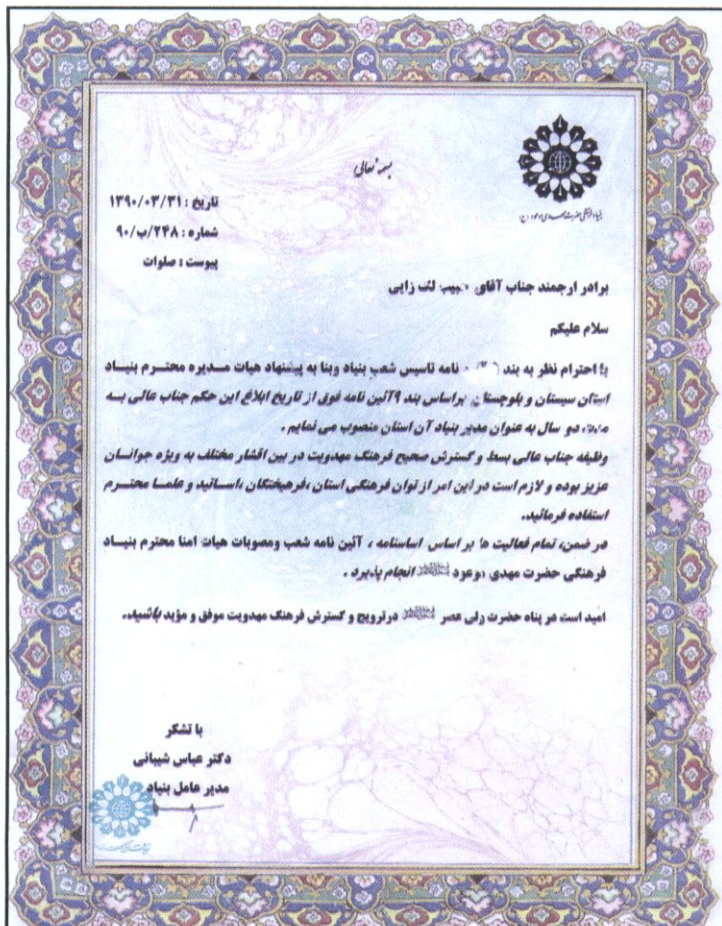 بسمه تعالی
بنیاد فرهنگی حضرت مهدی موعود (عج)
تاریخ : ۱۳۹۰/۰۳/۳۱
شماره : ۲۴۸/ب/۹۰
پیوست : صلوات
برادر ارجمند جناب آقای حبیب لک زایی
سلام علیکم
با احترام نظر به بند نامه تاسیس شعب بنیاد وبنا به پیشنهاد هیات مـدیره محتـرم بنیـاد
استان سیستان و بلوچستان براساس بند ۹آئین نامه فوق از تاریخ ابلاغ این حکم جناب عالی بـه
مدت دو سال به عنوان مدیر بنیاد آن استان منصوب می نمایم .
وظیفه جناب عالی بسط و گسترش صحیح فرهنگ مهدویت در بین اقشار مختلف به ویژه جوانـان
عزیز بوده و لازم است در این امر از توان فرهنگی استان ،فرهیختگان ،اسـاتید و علمـا محتـرم
استفاده فرمائید.
در ضمن، تمام فعالیت ها بر اساس اساسنامه ، آئین نامه شعب ومصوبات هیات امنا محترم بنیـاد
فرهنگی حضرت مهدی موعود انجام پذیرد .
امید است در پناه حضرت ولی عصر درترویج و گسترش فرهنگ مهدویت موفق و مؤید باشید.
با تشکر
دکتر عباس شیبانی
مدیر عامل بنیاد